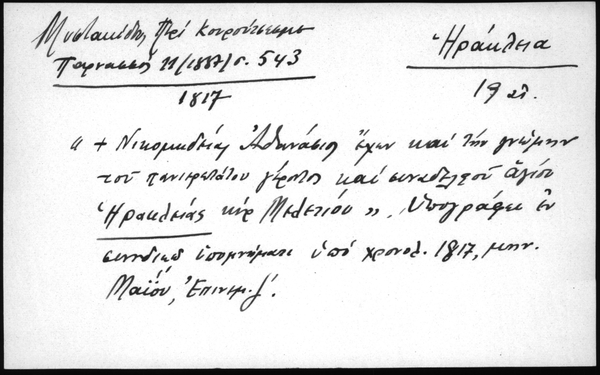 Μυστακίδης Περί Κουρούτσεσμε
Παρνασσός 11/1887/σ. 543
1817
Ἡράκλεια
19 αἰ.
" + Νικομηδείας Ἀθανάσιος ἔχων καί τήν γνώμην
τοῦ πανιερωτάτου γέροντος καί συναδελφοῦ ἁγίου
Ἡρακλείας κύρ Μελετίου". Ὑπογράφει ἐν
συνοδικῷ ὑπομνήματι ὑπό χρονολ. 1817, μην.
Μαΐου, Ἐπινεμ. ζ'.